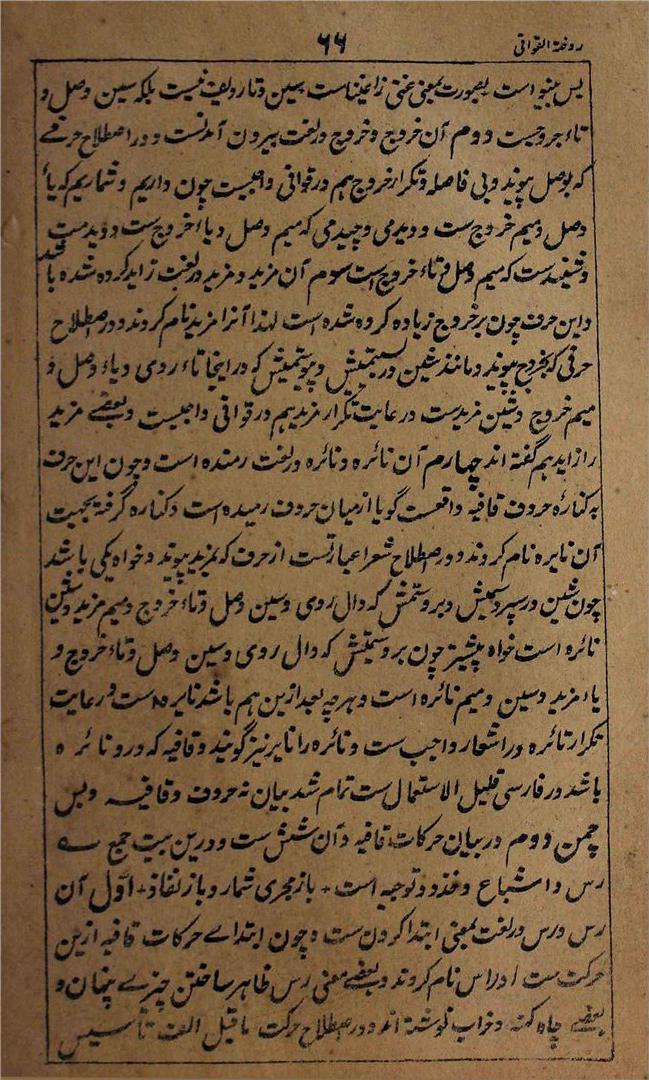 روضۃ القوافی ۶۶
پس جیو است بصورت بمعنی غنی زاغیناست بسین و تا ردیف نیست بلکہ سین وصل و
تاء خروجست دوم آن خروج و خروج در لغت بیرون آمدنست و در اصطلاح حرفے
کہ بوصل پیوند و بی فاصلہ و تکرار خروج ہم در قوافی واجبست چون داریم و شماریم کہ یاء
وصل و میم خروج ست و دیدمی و چیدمی کہ میم وصل و یاء خروج ست و دیدمت
کہ میم وصل و تاء خروج است سوم آن مزید و مزید در لغت زاید کردہ شدہ باشد
و این حرف چون بر خروج زیادہ کردہ شدہ است لہذا آنرا مزید نام کردند و در اصطلاح
حرفی کہ بخروج پیوند و مانند شین در بستمیش و پیوستمیش کہ در اینجا تاء روی و یاء وصل و
میم خروج و شین مزیدست و رعایت تکرار مزید ہم در قوافی واجبست و بعضے مزید
را زاید ہم گفتہ اند چہارم آن نائرہ و نائرہ در لغت رمندہ است و چون این حرف
بہ کنارۂ حروف قافیہ واقعست گویا از میان حروف رمیدہ است و کنارہ گرفتہ بجہت
آن نایرہ نام کردند و در اصطلاح شعرا عبارتست از حرف کہ بمزید پیوند و خواہ یکی باشد
چون شین در سپردسمیش و بروستمش کہ دال روی و سین وصل و تاء خروج و میم مزید و شین
نائرہ است خواہ بیشتر چون بروستیمش کہ دال روی و سین وصل و تاء خروج و
یاء مزید و سین و میم نائرہ است و ہرچہ بعد ازین ہم باشد نایرہ است و رعایت
تکرار نائرہ در اشعار واجب ست و نائرہ را نایر نیز گویند و قافیہ کہ درو نائرہ
باشد در فارسی قلیل الاستعمال ست تمام شد بیان نہ حروف قافیہ و بس
چمن دوم در بیان حرکات قافیہ و آن شش ست و درین بیت جمع سہ
رس و اشباع و حذو و توجیہ است ٭ باز مجری شمار و باز نفاذ ٭ اوّل آن
رس و رس در لغت بمعنی ابتدا کردن ست و چون ابتداے حرکات قافیہ ازین
حرکت ست او را رس نام کردند و بعضے معنی رس ظاہر ساختن چیزے پنہان و
بعضے چاہ کہنہ و خراب نوشتہ اند و در اصطلاح حرکت ما قبل الف تاسیس